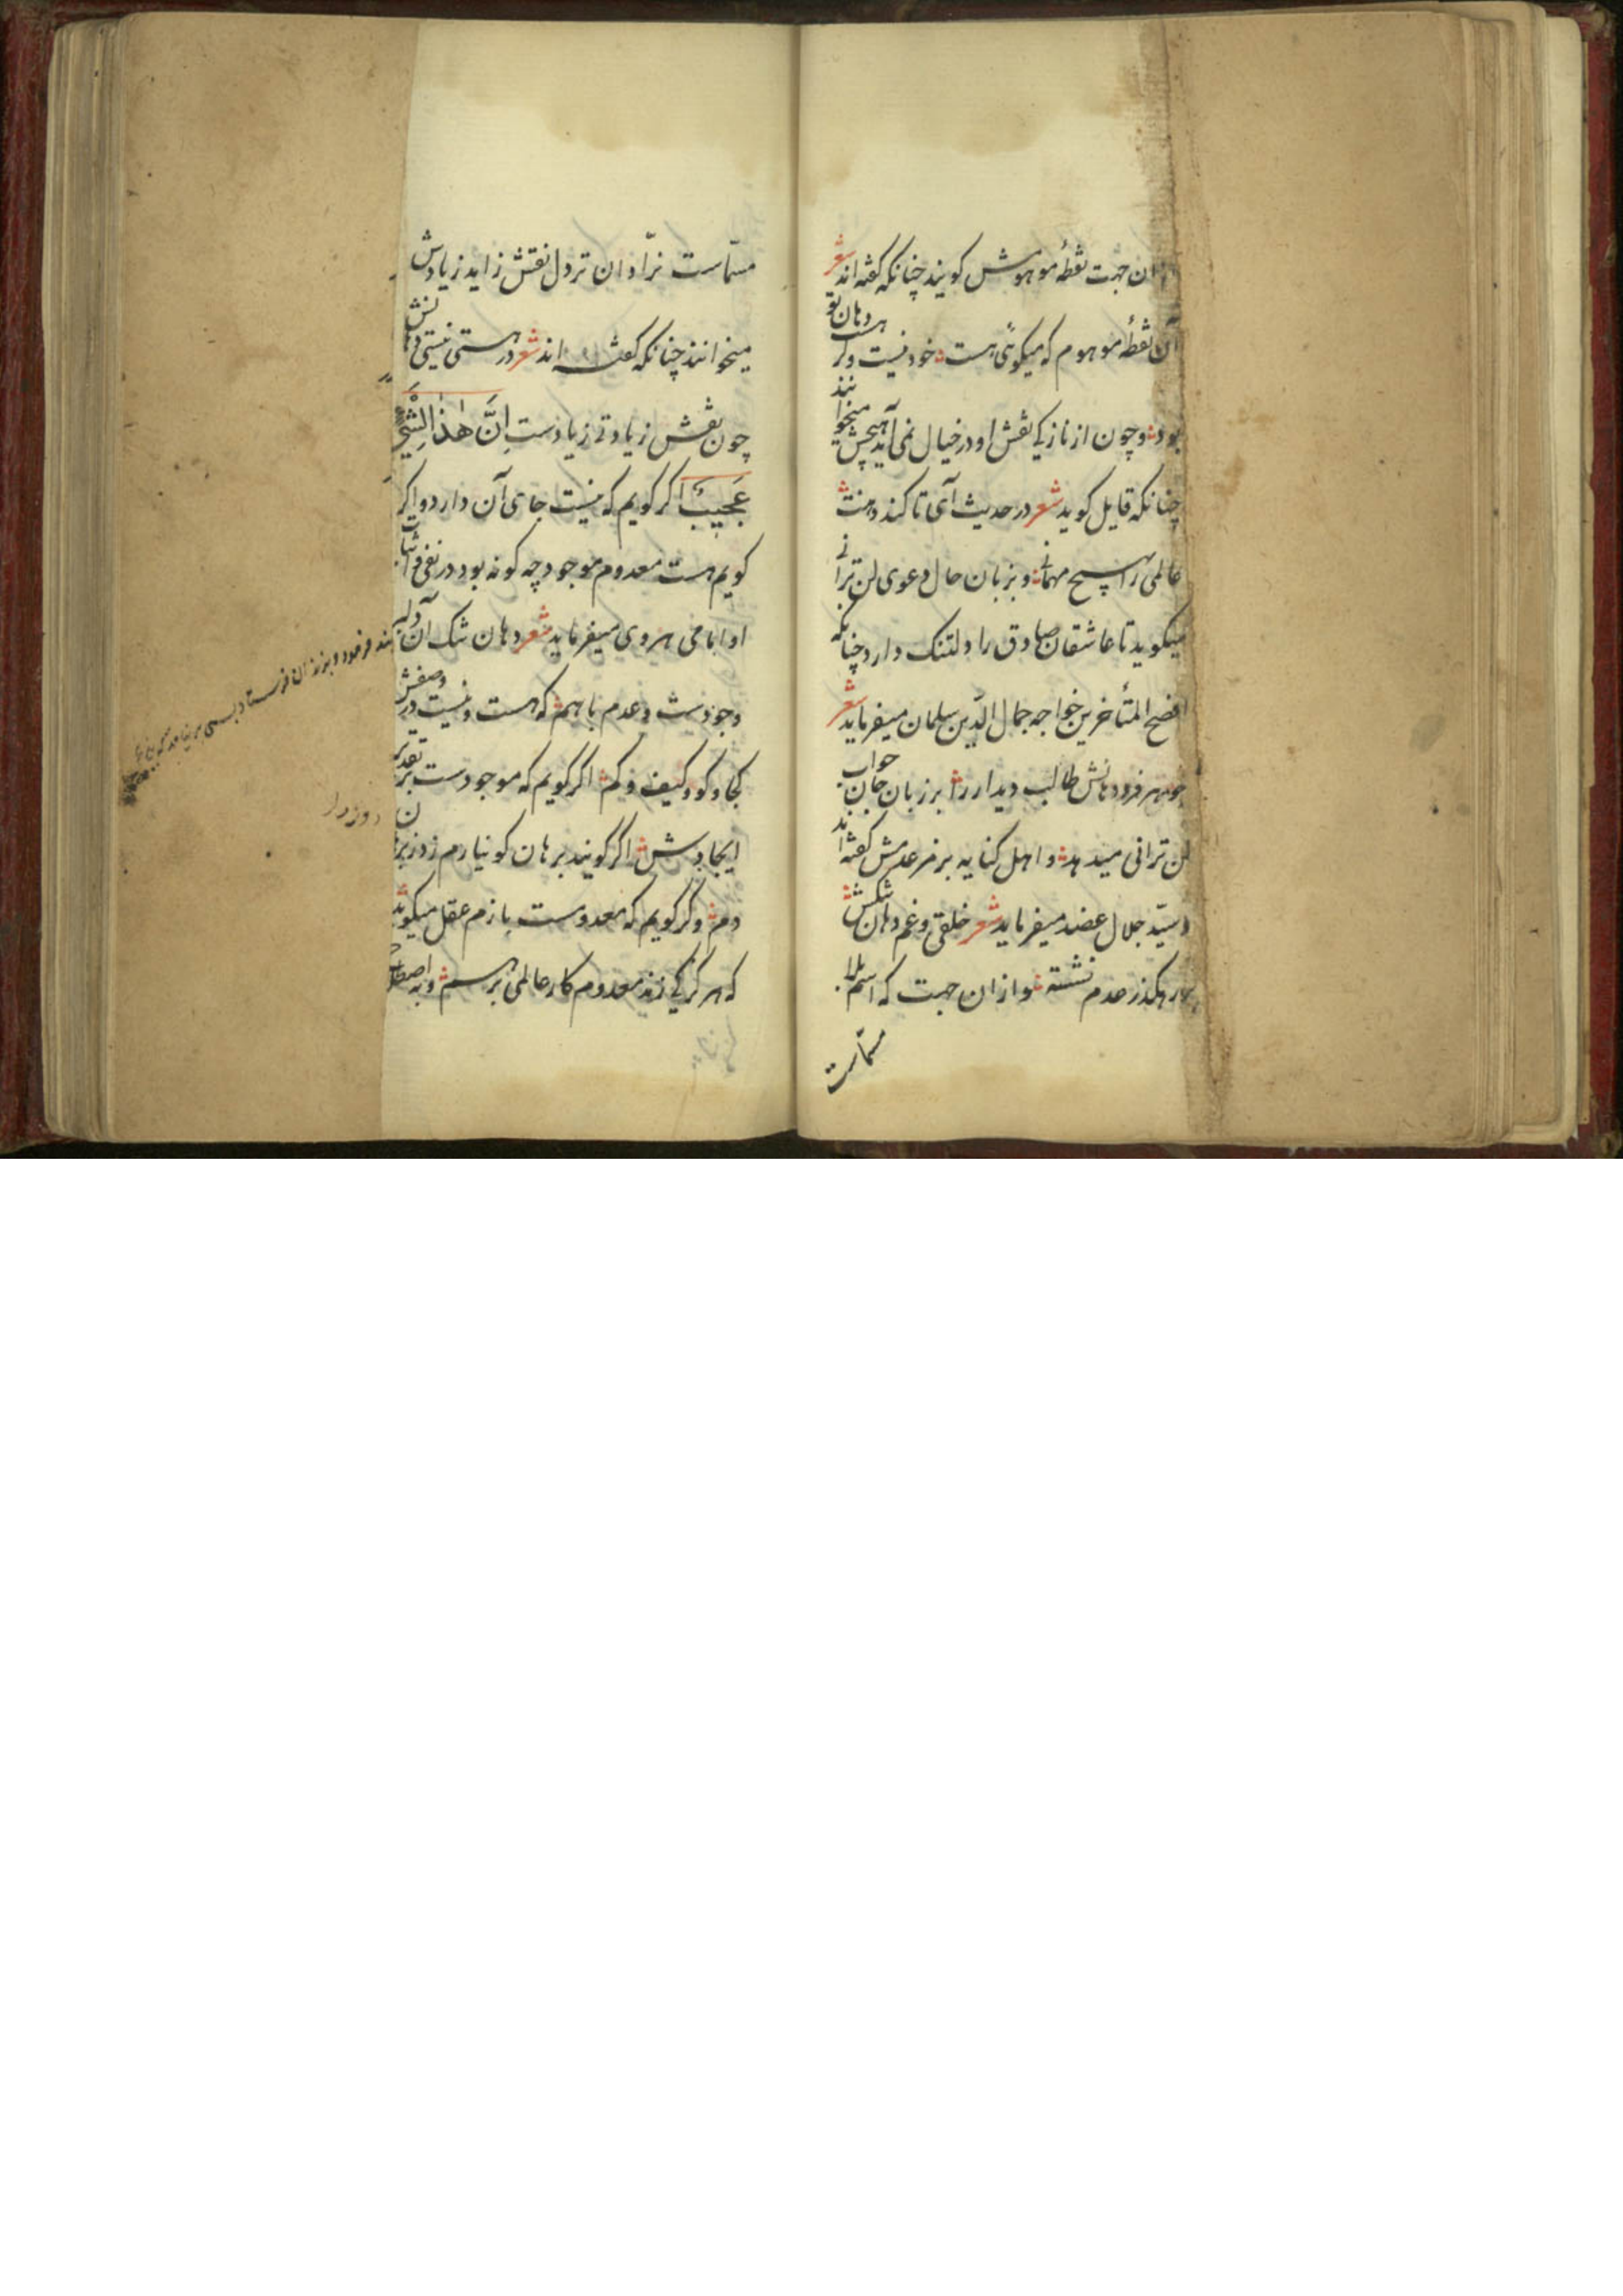 ازان جهت نقطهٔ موهومش کویند چنانکه کفته‌اند شعر
آن نقطهٔ موهوم که میکوئی هست خود نیست وکر هست دهان تو
بود وچون از نازکی نقش او در خیال نمی‌آید هیچش میخوانند
چنانکه قایل کوید شعر در حدیث آی تا کند دهنت
عالمی را بهیچ مهمانی وبزبان حال دعوی لن ترانی
میکوید تا عاشقان صادق را دلتنک دارد چنانکه
افصح المتأخرین خواجه جمال الدّین سلمان میفرماید شعر
دهانش طالب دیدار را بر زبان جان جواب
لن ترانی میدهد و اهل کنایه برمز عدمش کفته‌اند
وسیّد جلال عضد میفرماید شعر خلقی و غم دهان تنکش
بر رهکذر عدم نشسته وازان جهت که اسم بلا
مسمّاست
مسمّاست نرّادان نرد دل نقش زاید زیادش
میخوانند چنانکه کفته اند شعر در هستی نیستی دهانش
چون نقش زیادتی زیادست اِنَّ هٰذَا لَشَیْءٌ
عَجِیبٌ اکر کویم که نیست جای آن دارد واکر
کویم هست معدوم موجود چه کونه بود در نفی واثبات
او امامی هروی میفرماید شعر دهان تنک آن دلبر
وجودست وعدم باهم که هست ونیست در وصفش
کجا وکو وکیف وکم اکر کویم که موجودست بر تقدیر
ایجادش اکر کویند برهان کو نیارم زد زبرهان
دم وکر کویم که معدومست بازم عقل میکوید
که هرکز کی زند معدوم کار عالمی برهم وبه اصطلاح